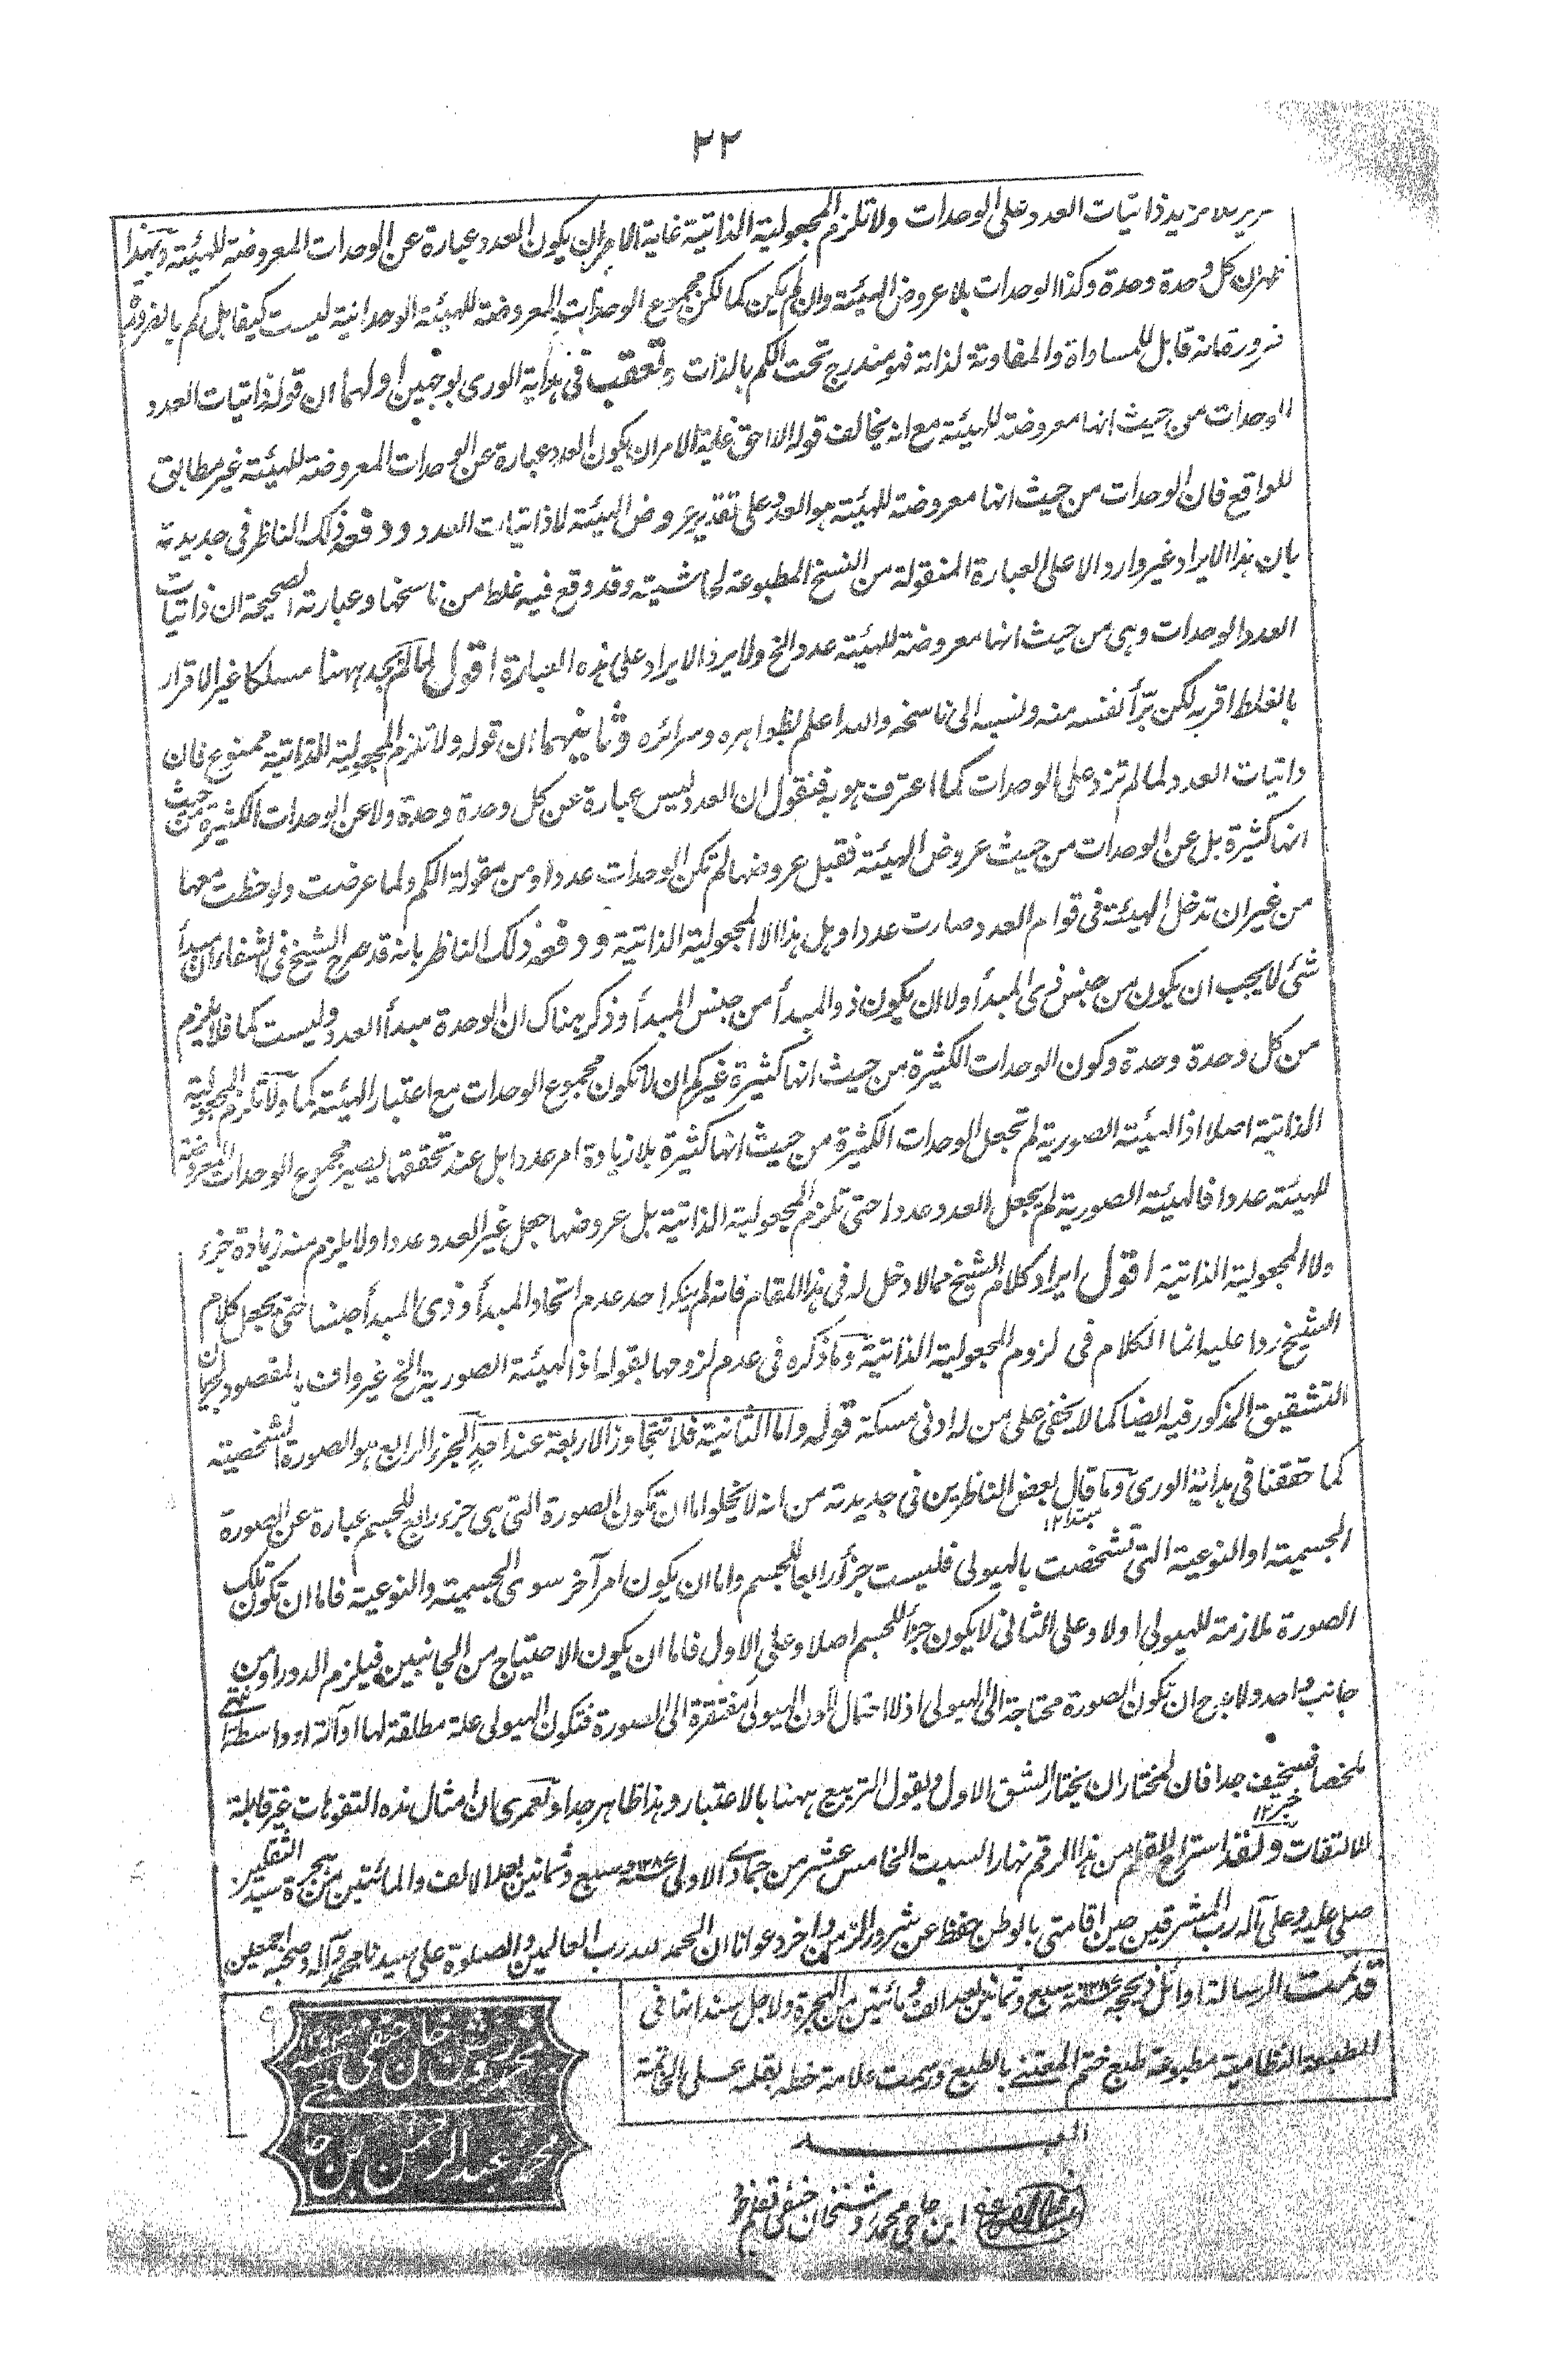 ٢٢
يزيد ذاتيات العدد على الوحدات ولا تلزم المجعولية الذاتية غاية الامر ان يكون العدد عبارة عن الوحدات المعروضة للهيئة وبهذا
ان كل وحدة وحدة وكذا الوحدات بلا عروض الهيئة وان لم يكن كما لكن مجموع الوحدات المعروضة للهيئة الوحدانية ليست كيفا بل كم بالضرورة
ضرورة انه قابل للمساواة والمفاوتة لذاته فهو مندرج تحت الكم بالذات وتعقب في هداية الورى بوجهين اولهما ان قوله ذاتيات العدد
الوحدات من حيث انها معروضة للهيئة مع انه يخالف قوله اللاحق غاية الامر ان يكون العدد عبارة عن الوحدات المعروضة للهيئة غير مطابق
للواقع فان الوحدات من حيث انها معروضة للهيئة هو العدد على تقدير عروض الهيئة لا ذاتيات العدد ودفعه ذلك الناظر في جديدته
بان هذا الايراد غير وارد الا على العبارة المنقولة من النسخ المطبوعة لحاشيته وقد وقع فيه غلط من ناسخها وعبارته الصحيحة ان ذاتيات
العدد الوحدات وهى من حيث انها معروضة للهيئة عدد الخ ولا يرد الايراد على هذه العبارة اقول لما لم يجد ههنا مسلكا غير الاقرار
بالغلط اقر به لكن برّأ نفسه منه ونسبه الى ناسخه والله اعلم بظواهره وسرائره وثانيهما ان قوله ولا تلزم المجعولية الذاتية ممنوع فان
ذاتيات العدد لما لم تزد على الوحدات كما اعترف هو به فنقول ان العدد ليس عبارة عن كل وحدة وحدة ولا عن الوحدات الكثيرة من حيث
انها كثيرة بل عن الوحدات من حيث عروض الهيئة فقبل عروضها لم تكن الوحدات عددا ومن مقولة الكم ولما عرضت ولوحظت معها
من غير ان تدخل الهيئة في قوام العدد صارت عددا وهل هذا الا المجعولية الذاتية ودفعه ذلك الناظر بانه قد صرح الشيخ في الشفا ان مبدأ
شئ لا يجب ان يكون من جنس ذى المبدأ ولا ان يكون ذو المبدأ من جنس المبدأ وذكر هناك ان الوحدة مبدأ العدد وليست كما فلا يلزم
من كل وحدة وحدة وكون الوحدات الكثيرة من حيث انها كثيرة غير كم ان لا تكون مجموع الوحدات مع اعتبار الهيئة كما ولا تلزم المجعولية
الذاتية اصلا اذ الهيئة الصورية لم تجعل الوحدات الكثيرة من حيث انها كثيرة بلا زيادة امر عددا بل عند تحققها يصير مجموع الوحدات المعروضة
للهيئة عددا فالهيئة الصورية لم يجعل العدد عددا حتى تلزم المجعولية الذاتية بل عروضها جعل غير العدد عددا ولا يلزم منه زيادة جزء
ولا المجعولية الذاتية اقول ايراد كلام الشيخ مما لا دخل له في هذا المقام فانه لم ينكر احد عدم اتحاد المبدأ وذى المبدأ جنسا حتى يجعل كلام
الشيخ ردا عليه انما الكلام في لزوم المجعولية الذاتية وما ذكره في عدم لزومها بقوله اذ الهيئة الصورية الخ غير واف بالمقصود لجريان
التشقيق المذكور فيه ايضا كما لا يخفى على من له ادنى مسكة قوله واما الثانية فلا تتجاوز الاربعة عند احدٍ الجزء الرابع هو الصورة الشخصية
كما حققنا في هداية الورى وما قال بعض الناظرين في جديدته من انه لا يخلو اما ان تكون الصورة التي هى جزء رابع للجسم عبارة عن الصورة
مبتدا ١٢
الجسمية او النوعية التي تشخصت بالهيولى فليست جزأ رابعا للجسم واما ان يكون امرا آخر سوى الجسمية والنوعية فاما ان تكون تلك
الصورة ملازمة للهيولى اولا وعلى الثانى لا يكون جزأ للجسم اصلا وعلى الاول فاما ان يكون الاحتياج من الجانبين فيلزم الدور او من
جانب واحد ولا بد ح ان تكون الصورة محتاجة الى الهيولى اذ لا احتمال لكون الهيولى مفتقرة الى الصورة فتكون الهيولى علة مطلقة لها او آلة او واسطة انتهى
ملخصا فسخيف جدا فان لمختار ان يختار الشق الاول ويقول التربيع ههنا بالاعتبار وهذا ظاهر جدا ولعمرى ان امثال هذه التفوهات غير قابلة
خبر ١٢
للالتفات ولقد استراح القلم من هذا الرقم نهار السبت الخامس عشر من جمادى الاولى سنة ١٢٨٧ سبع وثمانين بعد الالف والمائتين من هجرة سيد الثقلين
صلى عليه وعلى آله رب المشرقين حين اقامتى بالوطن حفظ عن شرور الزمن واخر دعوانا ان الحمد لله رب العالمين والصلوة على سيدنا محمد وآله وصحبه اجمعين
قد تمت الرسالة اوائل ذيحجه سنة ١٢٨٧ سبع وثمانين بعد الف ومائتين من الهجرة ولاجل سند انها في
المطبعة النظامية مطبوعة طبع ختم المعتنى بالطبع ورسمت علامة خطه بقلمه على الخاتمة
محمد روشن خان حنفى
محمد عبد الرحمن بن حاجى
العبد
ابن حاجى محمد روشنخان حنفى